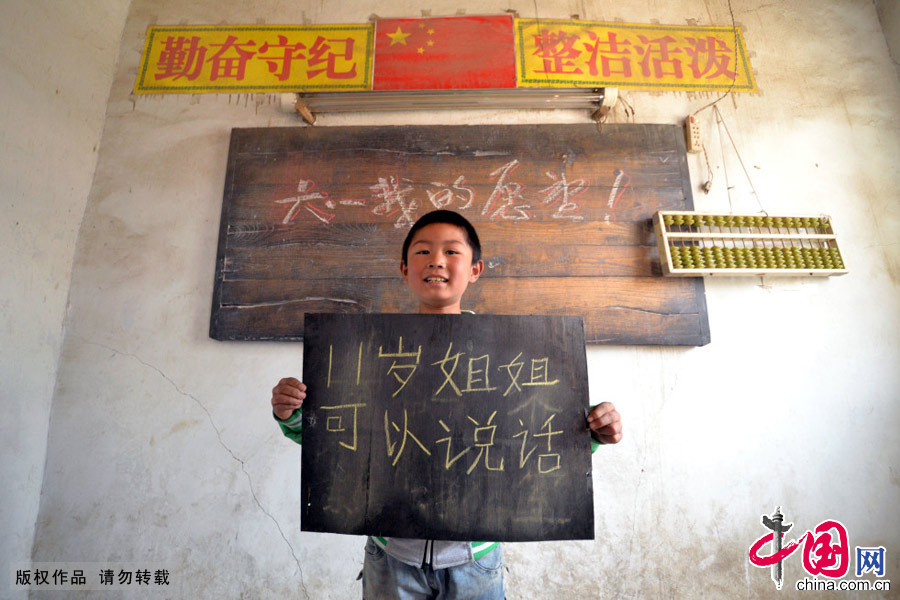 勤奋守纪 整洁活泼
六一我的愿望！
11岁姐姐
可以说话
版权作品 请勿转载
中国网
china.com.cn